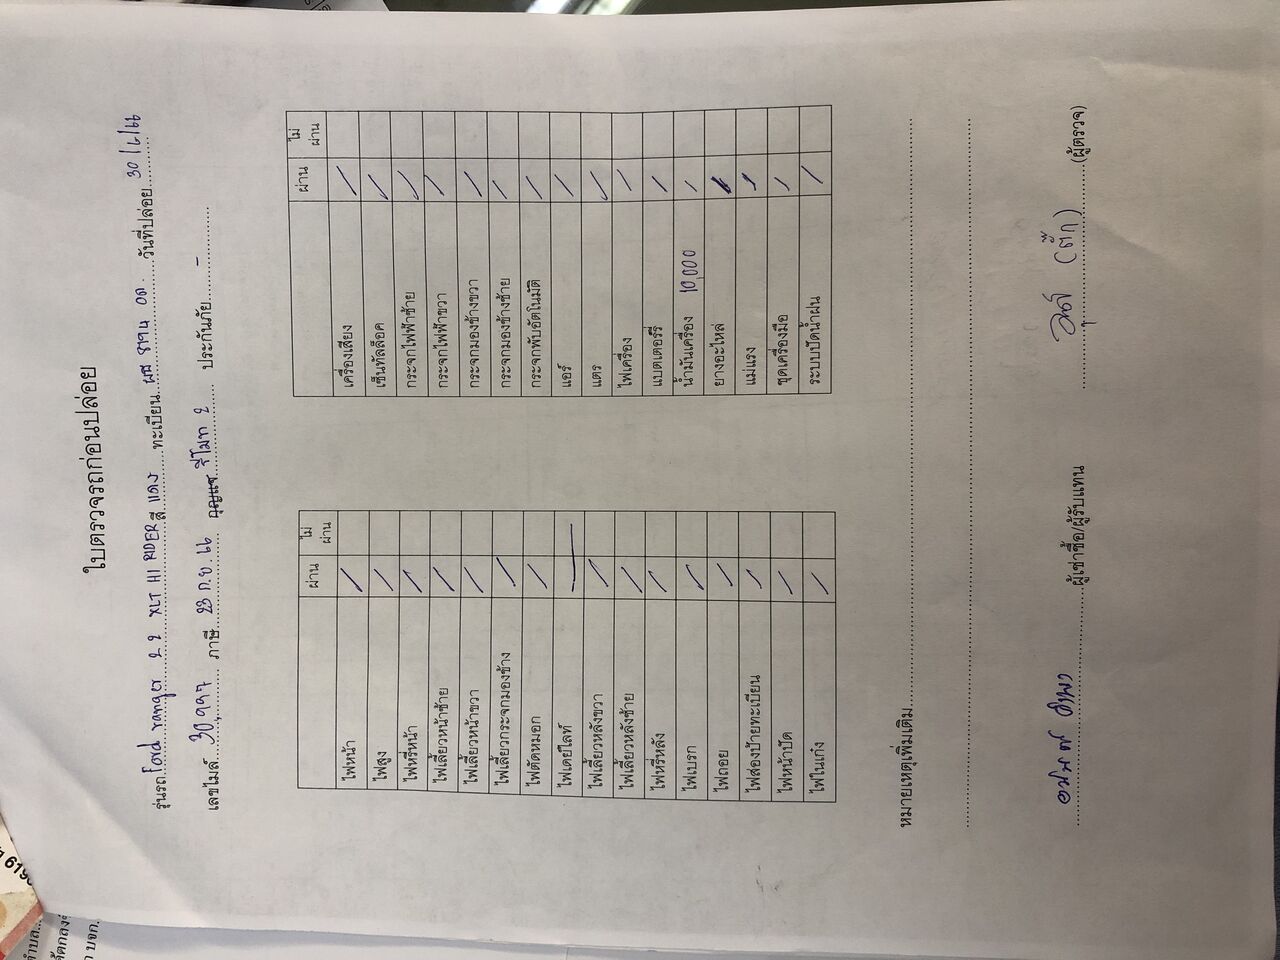 ใบตรวจรถก่อนปล่อย
รุ่นรถ Ford ranger 2.2 XLT HI RIDER สี แดง ทะเบียน วันที่ปล่อย 30/6/66
เลขไมล์ 30,997 ภาษี 23 ก.ย. 66 กุญแจ รีโมท 2 ประกันภัย -
ผ่าน ไม่ผ่าน
ไฟหน้า /
ไฟสูง /
ไฟหรี่หน้า /
ไฟเลี้ยวหน้าซ้าย /
ไฟเลี้ยวหน้าขวา /
ไฟเลี้ยวกระจกมองข้าง /
ไฟตัดหมอก /
ไฟเดย์ไลท์ —
ไฟเลี้ยวหลังขวา /
ไฟเลี้ยวหลังซ้าย /
ไฟหรี่หลัง /
ไฟเบรก /
ไฟถอย /
ไฟส่องป้ายทะเบียน /
ไฟหน้าปัด /
ไฟในเก๋ง /
ผ่าน ไม่ผ่าน
เครื่องเสียง /
เซ็นทัลล็อค /
กระจกไฟฟ้าซ้าย /
กระจกไฟฟ้าขวา /
กระจกมองข้างขวา /
กระจกมองข้างซ้าย /
กระจกพับอัตโนมัติ /
แอร์ /
แตร /
ไฟเครื่อง /
แบตเตอรรี่ /
น้ำมันเครื่อง 10,000 /
ยางอะไหล่ /
แม่แรง /
ชุดเครื่องมือ /
ระบบปัดน้ำฝน /
หมายเหตุเพิ่มเติม
ผู้เช่าซื้อ/ผู้รับแทน
(ตั๊ก) (ผู้ตรวจ)